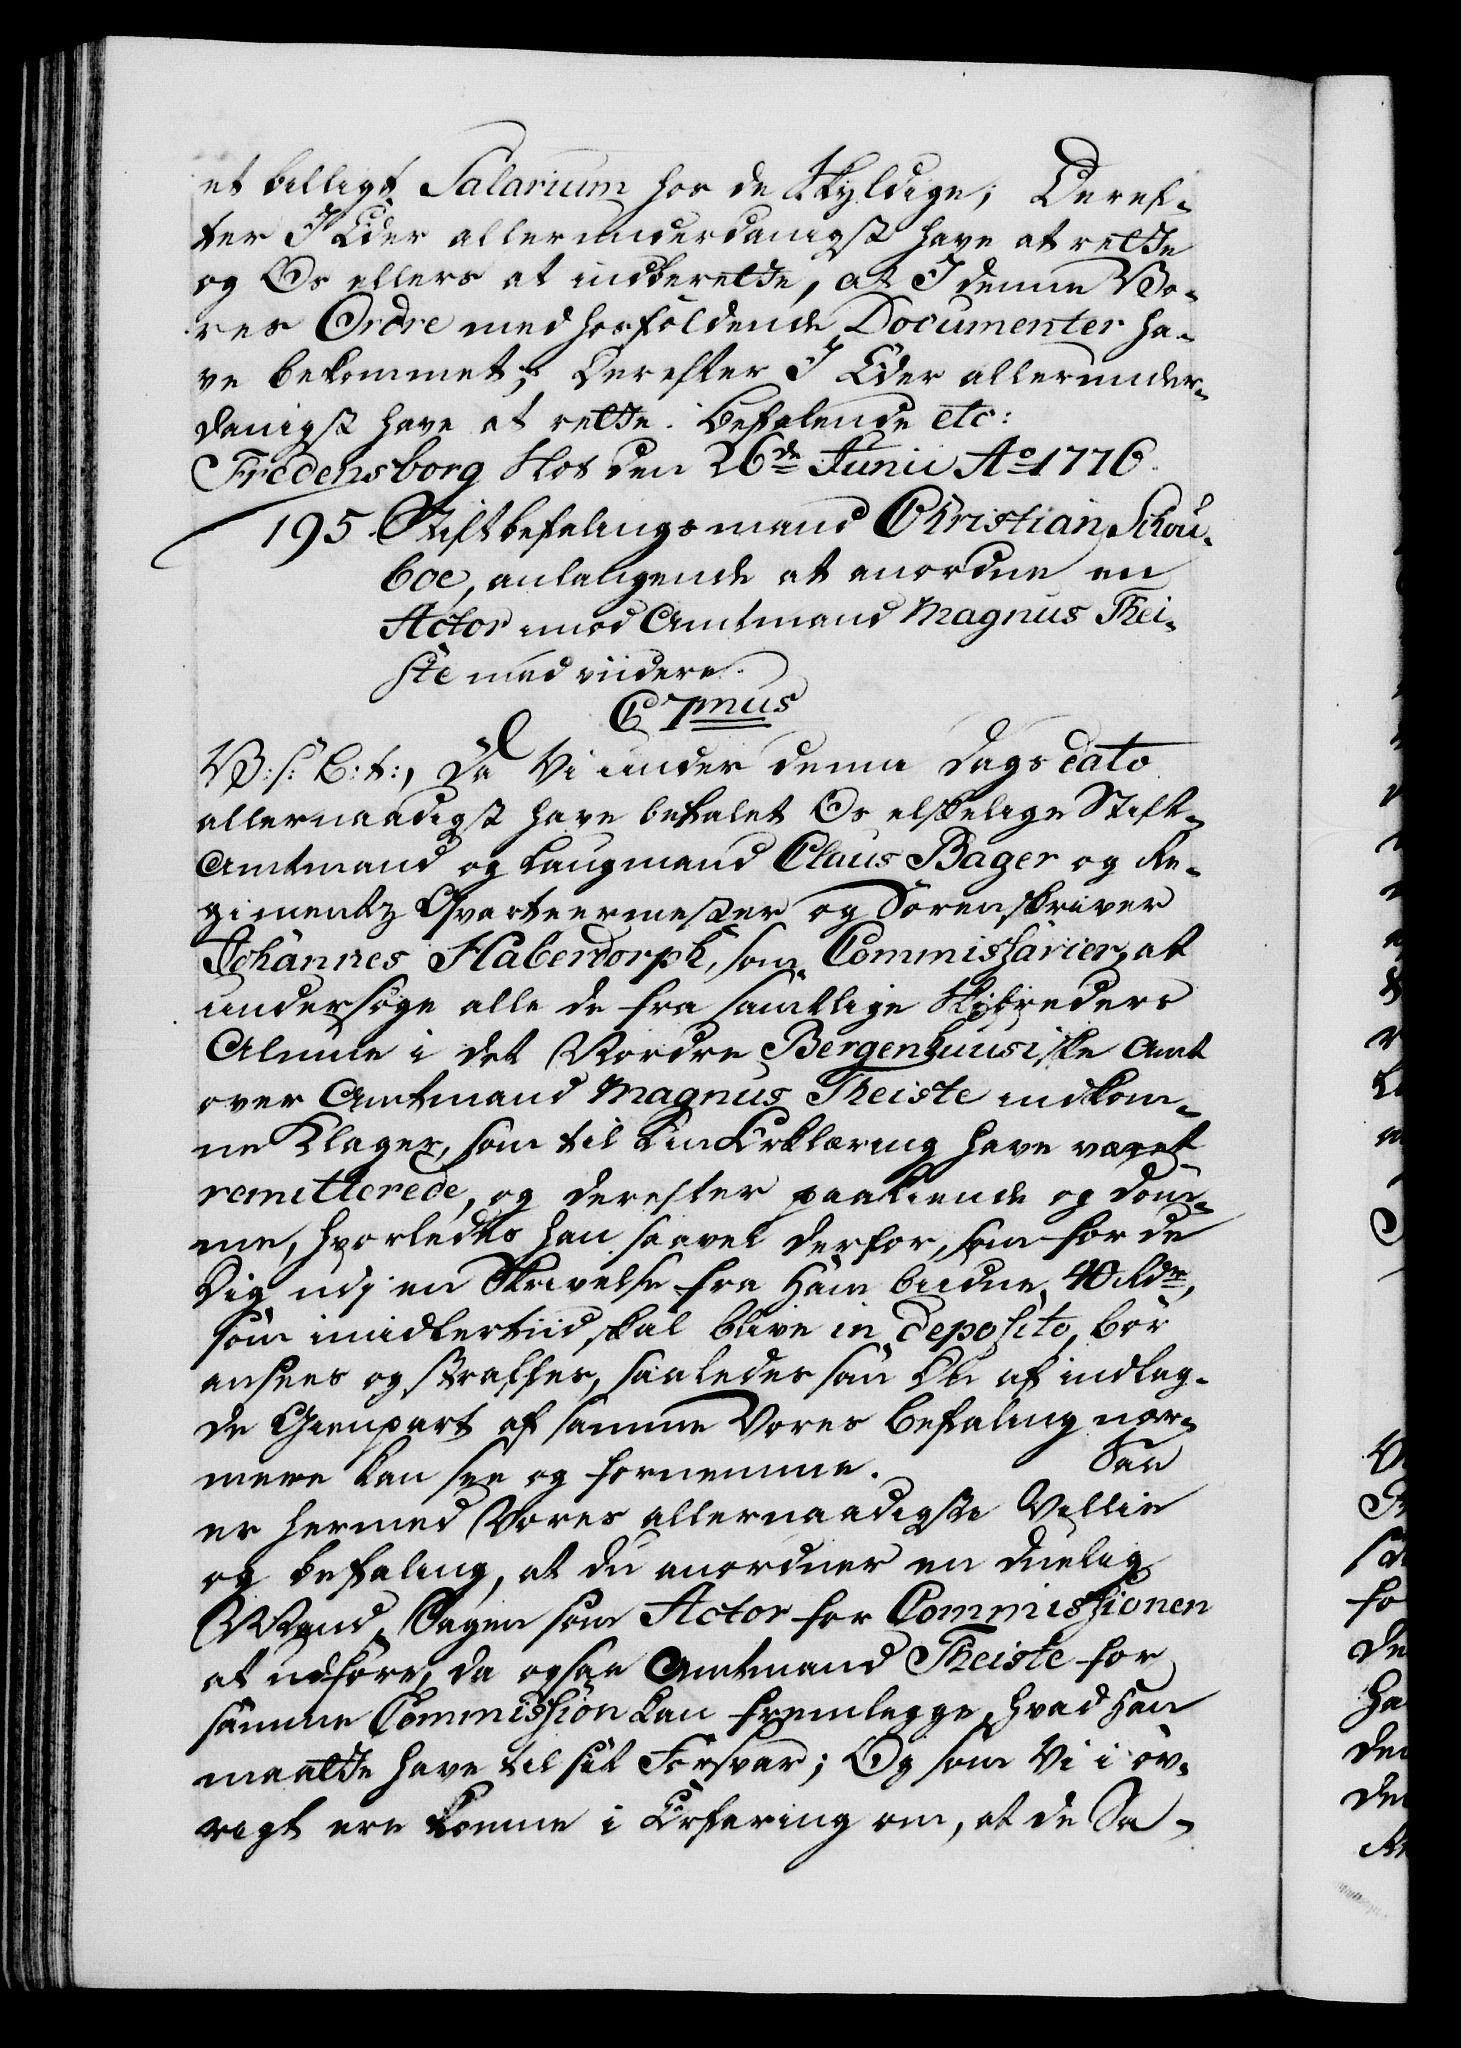 et billigt Salarium hos de Skyldige; Deref-
ter I Eder allerunderdanigst have at rette
og Os ellers at indberette, at I denne Vo-
res Ordre med hosføldende Documenter ha-
ve bekommet; Derefter I Eder allerunder-
danigst have at rette. Befalende etc:
Fredensborg Slot den 26de Junii Ao 1776.
195. Stiftbefalingsmand Christian Schou-
boe, anlangende at anordne en
Actor imod Amtmand Magnus Thei-
ste med viidere.
C7mus
V: s: G: t:, Da Vi under denne Dags dato
allernaadigst have befalet Os elskelige Stift-
Amtmand og Laugmand Claus Bager og Re-
gimentz Qvarteermester og Sorenskriver
Johannes Haberdorph, som Commissarier, at
undersøge alle de fra samtlige Skibreders
Almue i det Nordre Bergenhuusiske Amt
over Amtmand Magnus Theiste indkom-
ne Klager, som til hin Erklæring have været
remitterede, og derefter paakiende og døm-
me, hvorledes han saavel derfor, som for de
Dig udj en Skrivelse fra Ham budne 40 Rdr,
som imidlertiid skal blive in deposito, bør
ansees og straffes, saaledes som Du af indlag-
de Gienpart af samme Vores Befaling nær-
mere kan see og fornemme. Saa
er hermed Vores allernaadigste Villie
og Befaling, at du anordner en duelig
Mand, Sagen som Actor for Commissionen
at udføre, da ogsaa Amtmand Theiste for
samme Commission kan fremlegge, hvad Han
maatte have til sit Forsvar; Og som Vi i øv-
rigt ere komne i Erfaring om, at de Sa-